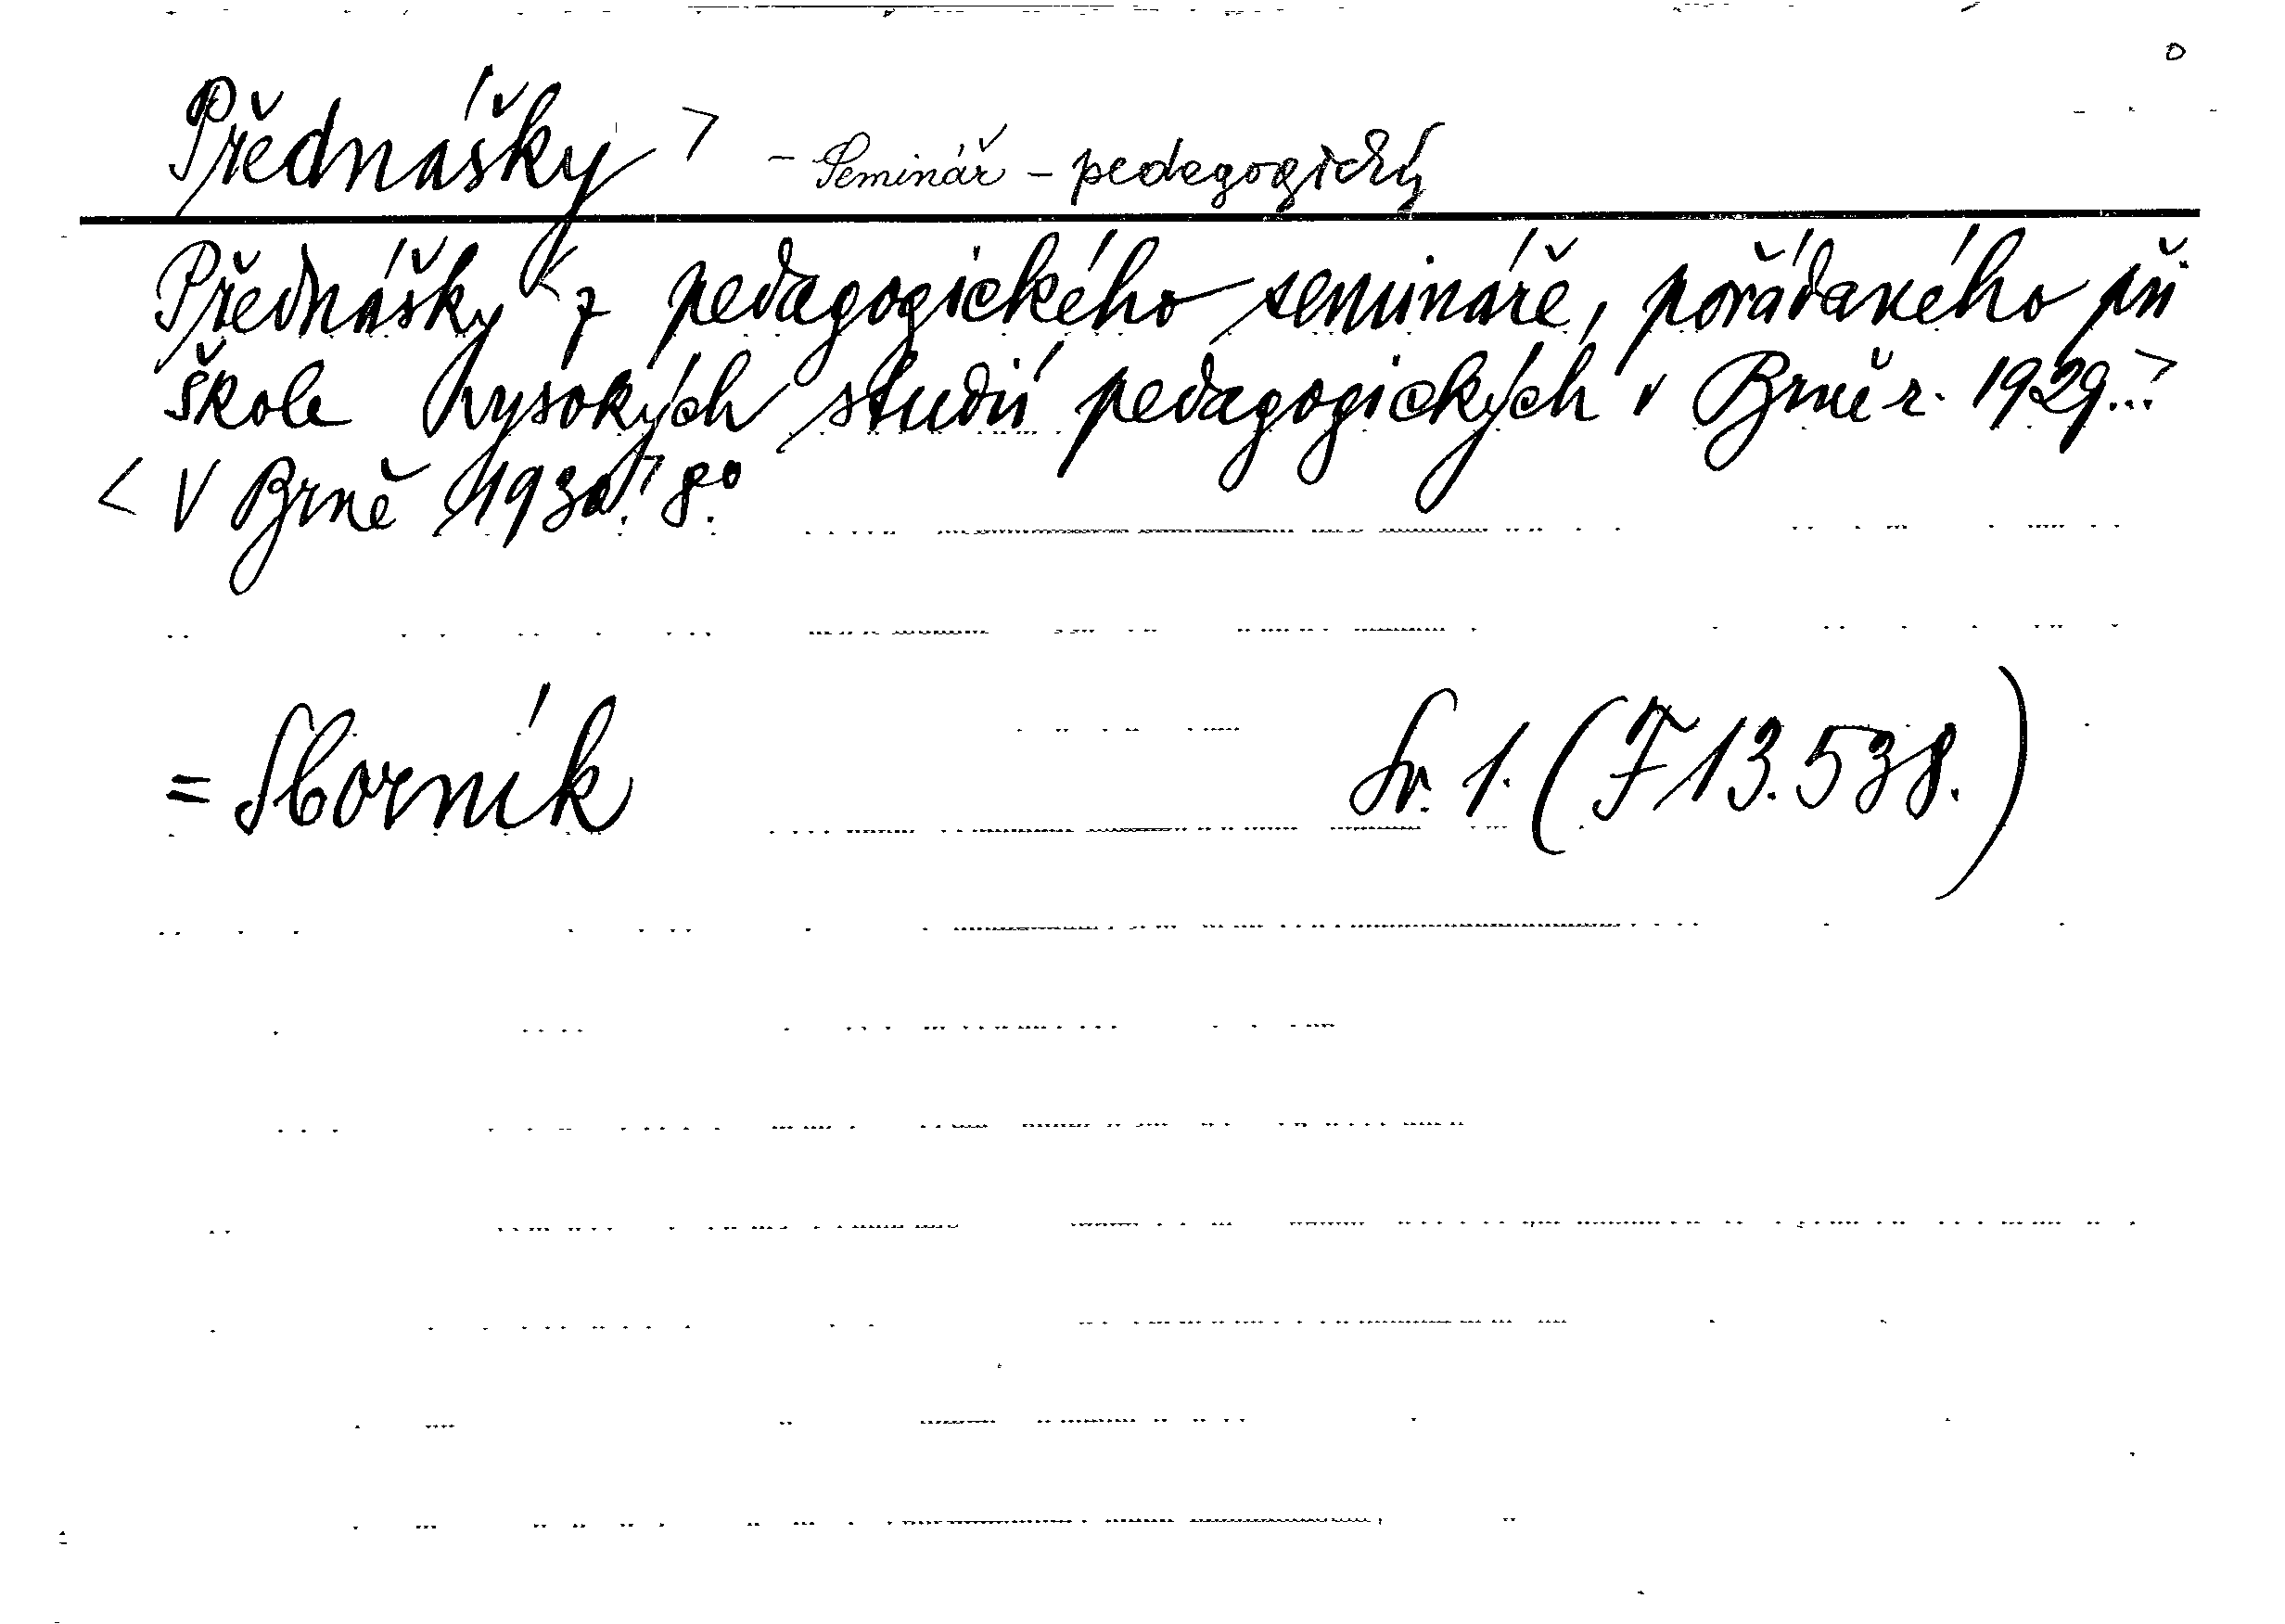 Přednášky > - Seminář - pedagogický
Přednášky < z pedagogického semináře, pořádaného při
škole vysokých studií pedagogických v Brně r. 1929...>
< V Brně 1930.> 8°.
= Sborník Sv. 1. (F 13.538.)